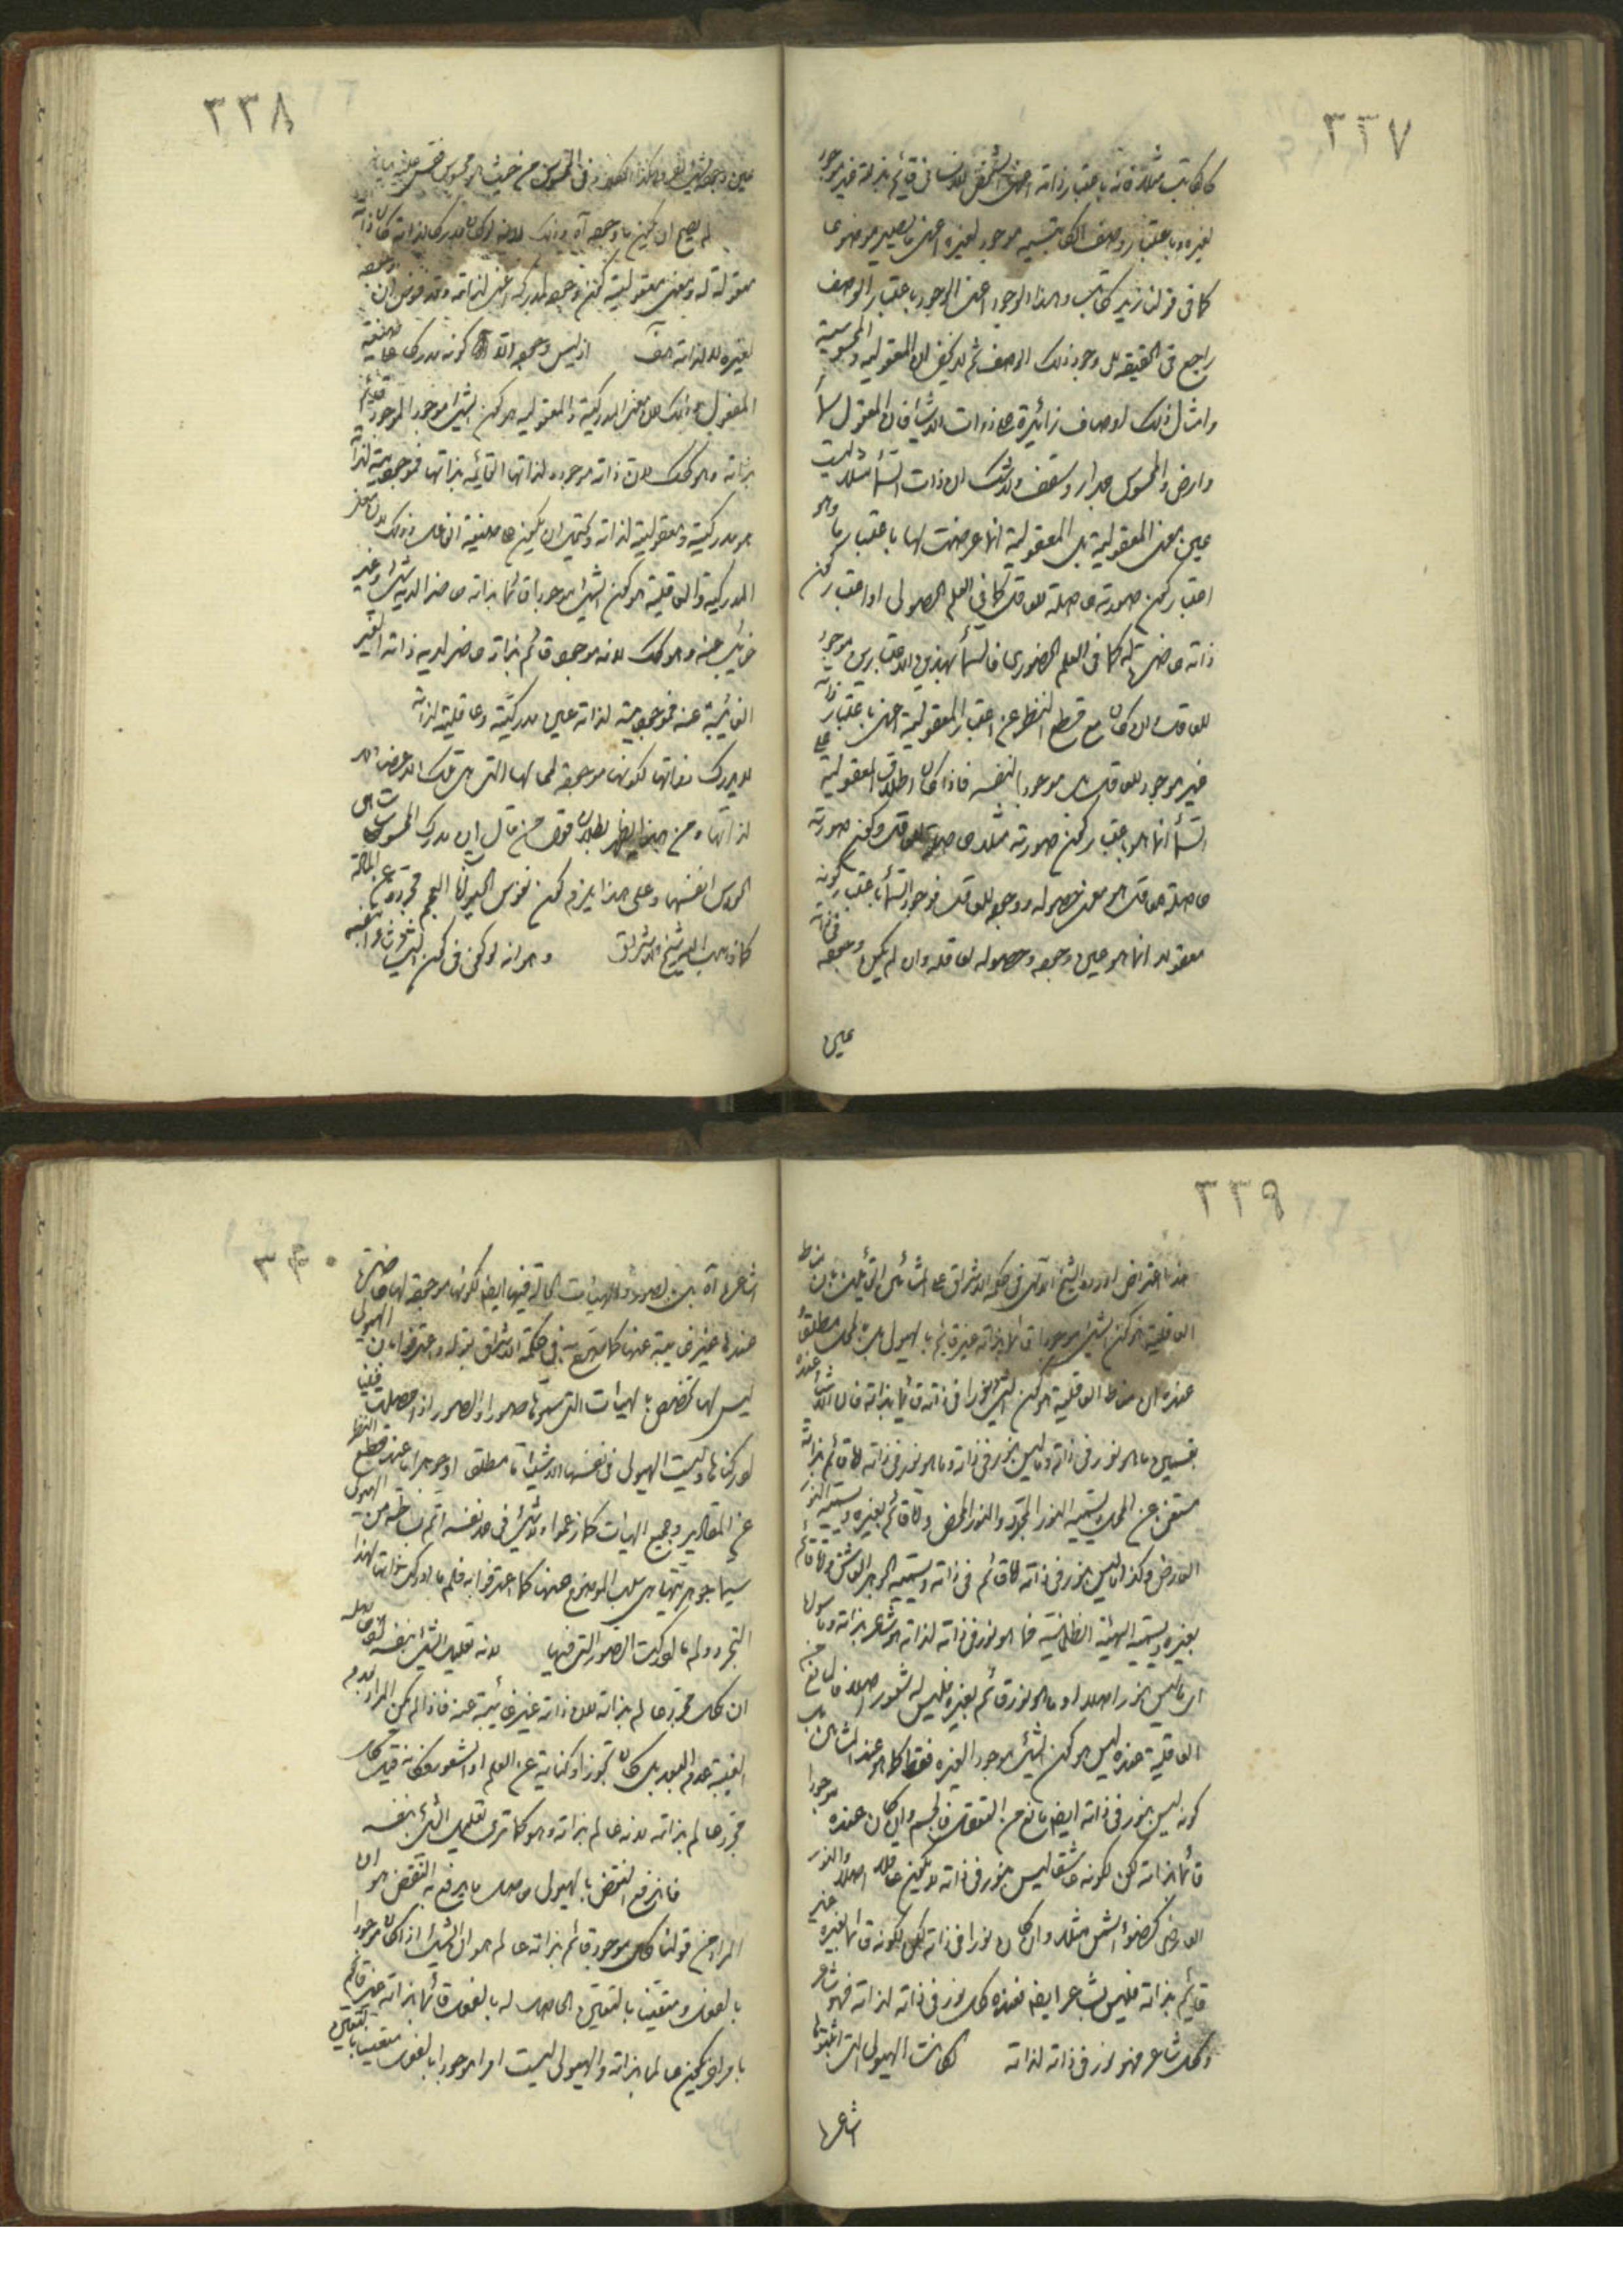 ٣٣٧
كالكاتب مثلا فانه باعتبار ذاته اعنى الشخص الانسانى قائم بذاته غير موجود
لغيره وباعتبار وصف الكاتبية موجود لغيره اعنى ما يصير موضوعا
كما فى قولنا زيد كاتب وهذا الوجود اعنى الوجود باعتبار الوصف
راجع فى الحقيقة الى وجود ذلك الوصف ثم لا يخفى ان المعقولية والمحسوسية
وامثال ذلك اوصاف زائدة على ذوات الاشياء فان المعقول سماء
وارض والمحسوس جدار وسقف ولا شك ان ذات السماء مثلا ليست
عين معنى المعقولية بل المعقولية انما عرضت لها باعتبار ما وهو
اعتبار كون صورته حاصلة للعاقل كما فى العلم الحصولى او اعتبار كون
ذاته حاضرة له كما فى العلم الحضورى فالسماء بهذين الاعتبارين موجود
للعاقل وان كان مع قطع النظر عن اعتبار المعقولية اعنى باعتبار ذاته
غير موجود للعاقل بل موجود لنفسه فاذا كان اطلاق المعقولية على
السماء انما هو باعتبار كون صورته مثلا حاصلة للعاقل وكون صورته
حاصلة للعاقل هو معنى حصوله ووجوده للعاقل فوجود السماء باعتبار كونه
معقولا انما هو عين وجوده وحصوله لعاقله وان لم يكن وجوده فى ذاته
عين
٣٣٨
عين وجوده لشىء اخر وهكذا الكلام فى المحسوس من حيث هو محسوس فقس عليه
لم يصح ان يكون ما وجوده آه وذلك لانه لو كان مدركا لذاته كان ذاته
معقولة له ومعنى معقوليته كون وجوده لمدركه اعنى لذاته وقد فرض ان وجوده
لغيره لا لذاته هف اذ ليس وجوده الا كونه مدركا
المعقول وذلك لان معنى المدركية والمعقولية هو كون الشىء موجودا لموجود قائم
بذاته وهو كذلك لان ذاته موجودة لذاتها القائمة بذاتها فموجوديته لذاته
هو مدركيته ومعقوليته لذاته ويحتمل ان يكون على صيغة الفاعل وذلك لان معنى
المدركية والعاقلية هو كون الشىء موجودا قائما بذاته حاضرا لديه شىء غير
غائب عنه وهو كذلك لانه موجود قائم بذاته حاضر لديه ذاته الغير
الغائبة عنه فموجوديته لذاته عين مدركيته وعاقليته لذاته
لا يدرك ذواتها لكونها موجودة لمحالها التى هى تلك الاعضاء لا
لذاتها ومن هذا يظهر بطلان قول من قال ان مدرك المحسوسات هى
الحواس انفسها وعلى هذا يلزم كون نفوس الحيوانات العجم مجردة عن المادة
كما ذهب اليه شيخ الاشراق وهو انه لو كفى فى كون الشىء شاعرا بنفسه
٣٣٩
هذا اعتراض اورده الشيخ الآلهى فى حكمة الاشراق على المشائين القائلين بان مناط
العاقلية هو كون الشىء موجودا قائما بذاته غير قائم بالهيولى بل بالمحل مطلقا
عنده ان مناط العاقلية هو كون الشىء نورا فى ذاته قائما بذاته فان الاشياء عنده
بقسمين ما هو نور فى ذاته وما ليس بنور فى ذاته وما هو نور فى ذاته اما قائم بذاته
مستغن عن المحل ويسميه النور المجرد والنور المحض واما قائم بغيره ويسميه النور
العارض وكذا ما ليس بنور فى ذاته اما قائم فى ذاته ويسميه الجوهر الغاسق واما قائم
بغيره ويسميه الهيئة الظلمانية فما هو نور فى ذاته لذاته هو شاعر بذاته وما سواه
اى ما ليس بنور اصلا او ما هو نور قائم بغيره فليس له شعور اصلا فالمانع من
العاقلية عنده ليس هو كون الشىء موجودا لغيره فقط كما هو عند المشائين بل
كونه ليس بنور فى ذاته ايضا مانع من التعقل فالجسم وان كان عنده موجودا
قائما بذاته لكن لكونه غاسقا ليس بنور فى ذاته لا يكون عاقلا اصلا والنور
العارض كضوء الشمس مثلا وان كان نورا فى ذاته لكن لكونه قائما بغيره غير
قائم بذاته فليس بشاعر ايضا فعنده كل نور فى ذاته لذاته فهو شاعر
وكل شاعر فهو نور فى ذاته لذاته لكانت الهيولى التى اثبتوها
شاعرة
٣٤٠
شاعرة آه بل بالصور والهيئات الحالة فيها ايضا لكونها موجودة لها حاضرة
عندها غير غائبة عنها كما صرح به فى حكمة الاشراق بقوله واعترفوا بان الهيولى
ليس لها تخصص الا بالهيئات التى سموها صورا والصور اذا حصلت فينا
ادركناها وليست الهيولى فى نفسها الا شيئا ما مطلقا او جوهرا ما عند قطع النظر
عن المقادير وجميع الهيئات كما زعموا ولا شىء فى حد نفسه اتم بساطة من الهيولى
سيما جوهريتها هى سلب الموضوع عنها كما اعترفوا به فلم ما ادركت ذاتها لهذا
التجرد ولم ما ادركت الصور التى فيها لانه تعليل الشىء بنفسه لان حاصله
ان كل مجرد عالم بذاته لان ذاته غير غائبة عنه فاذا لم يكن المراد بعدم
الغيبة عدم البعد بل كان تجوزا وكناية عن العلم او الشعور فكانه قيل كل
مجرد عالم بذاته لانه عالم بذاته وهو كما ترى تعليل الشىء بنفسه
فاندفع النقض بالهيولى حاصل ما يدفع به النقض هو ان
المراد من قولنا كل موجود قائم بذاته عالم هو ان الشىء اذا كان موجودا
بالفعل ومتعينا بالتعين الحاصل له بالفعل قائما بذاته غير قائم
بامر اخر يكون عالما بذاته والهيولى ليست امرا موجودا بالفعل متعينا بالتعين